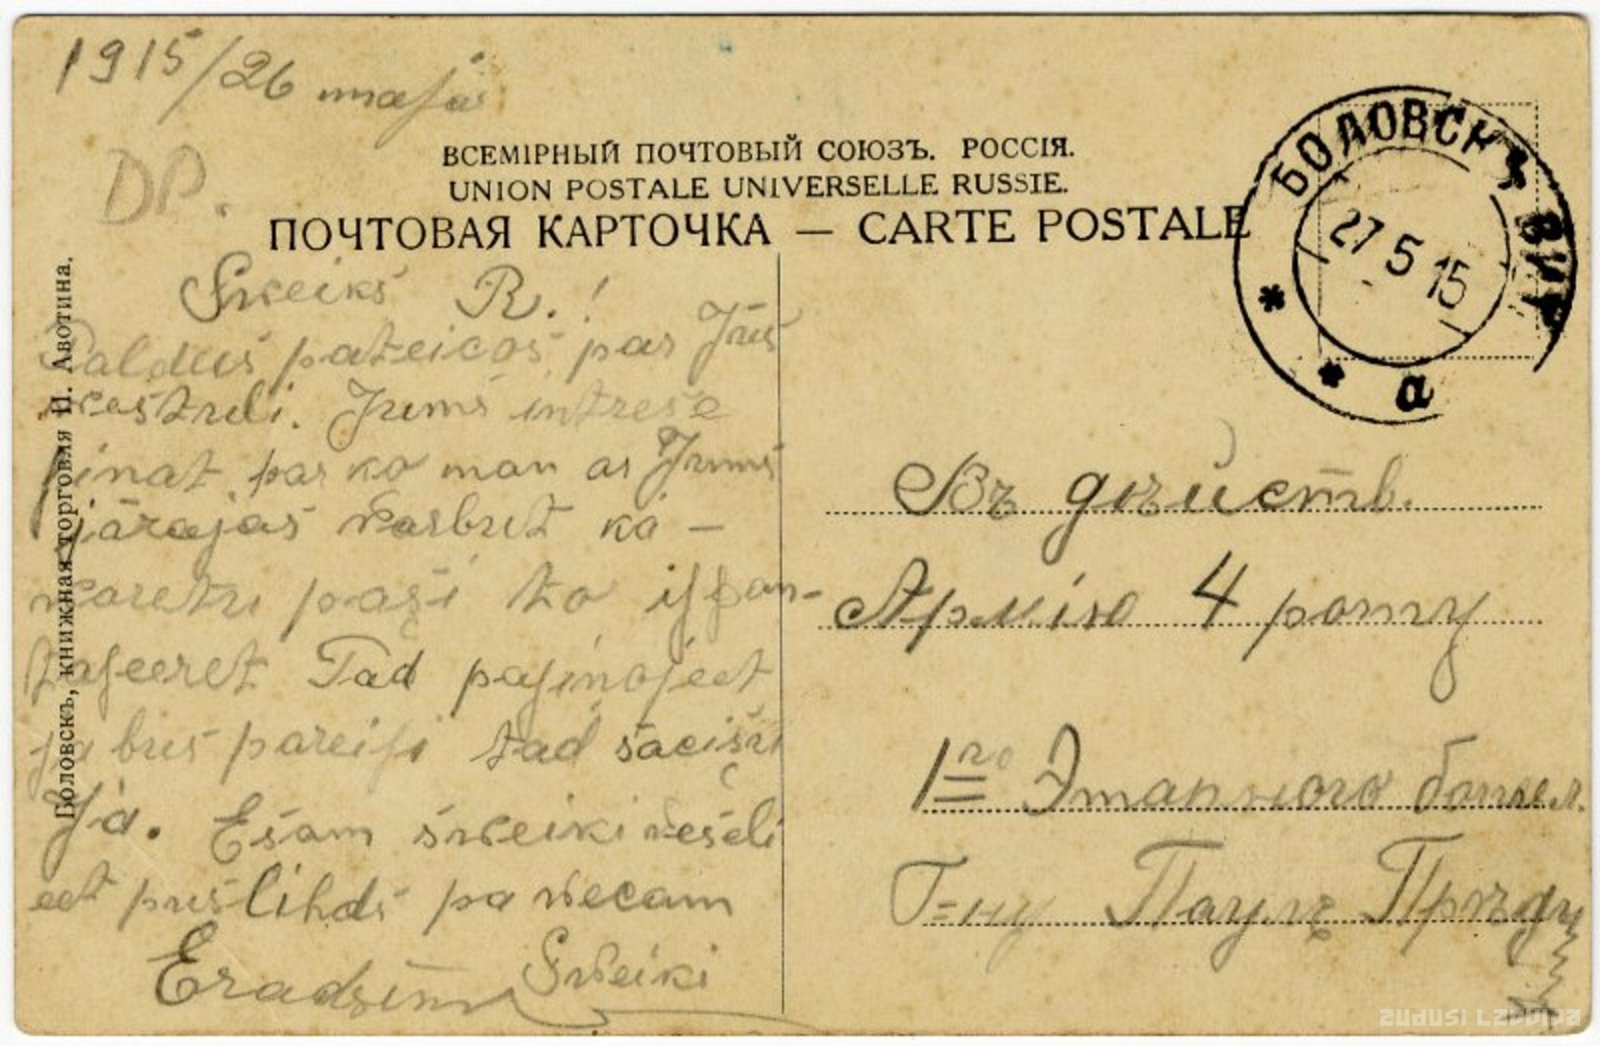 1915/26 majā
DP.
ВСЕМІРНЫЙ ПОЧТОВЫЙ СОЮЗЪ. РОССІЯ.
UNION POSTALE UNIVERSELLE RUSSIE.
ПОЧТОВАЯ КАРТОЧКА — CARTE POSTALE
БОЛОВСКЪ ВИТ
27 5 15
* * а
Боловскъ, книжная торговля И. Авотина.
Sweiks R.!
Paldeis pateicos par Jūs
westuli. Jums intrese
sinat, par ko man ar Jums
jārajas warbut kā –
pasi to isfan-
taseeret Tad pasinojeet
ja bus pareisi tad sacisu
Ja. Esam sweiki weseli
eet puslihds pa wecam
Sweiki
Въ дѣйств.
Армію 4 роту
1го Этапного батал.
Г-ну Паулъ
ZUDUSI LATVIJA